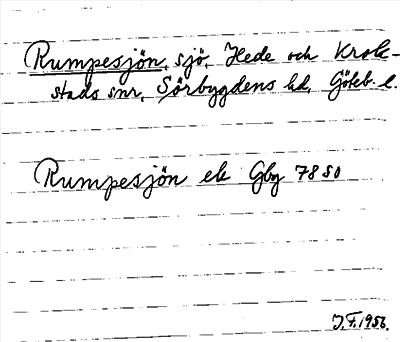 Rumpesjön, sjö, Hede och Krok-
stads snr, Sörbygdens hd, Göteb. l.
Rumpesjön ek Gbg 78 SO
J.F. 1956.